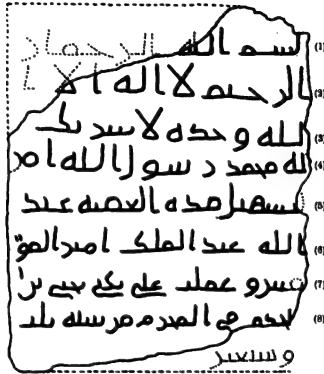 بسم الله الرحمن (1)
الرحيم لا اله الا ا (2)
لله وحده لا شريك (3)
له محمد رسول الله امر (4)
بتسهيل هذه العقبة عبد (5)
الله عبد الملك امير المؤ (6)
منين وعملت على يدي يحيى بن ا (7)
لحكم في المحرم من سنة ثلث (8)
وسبعين